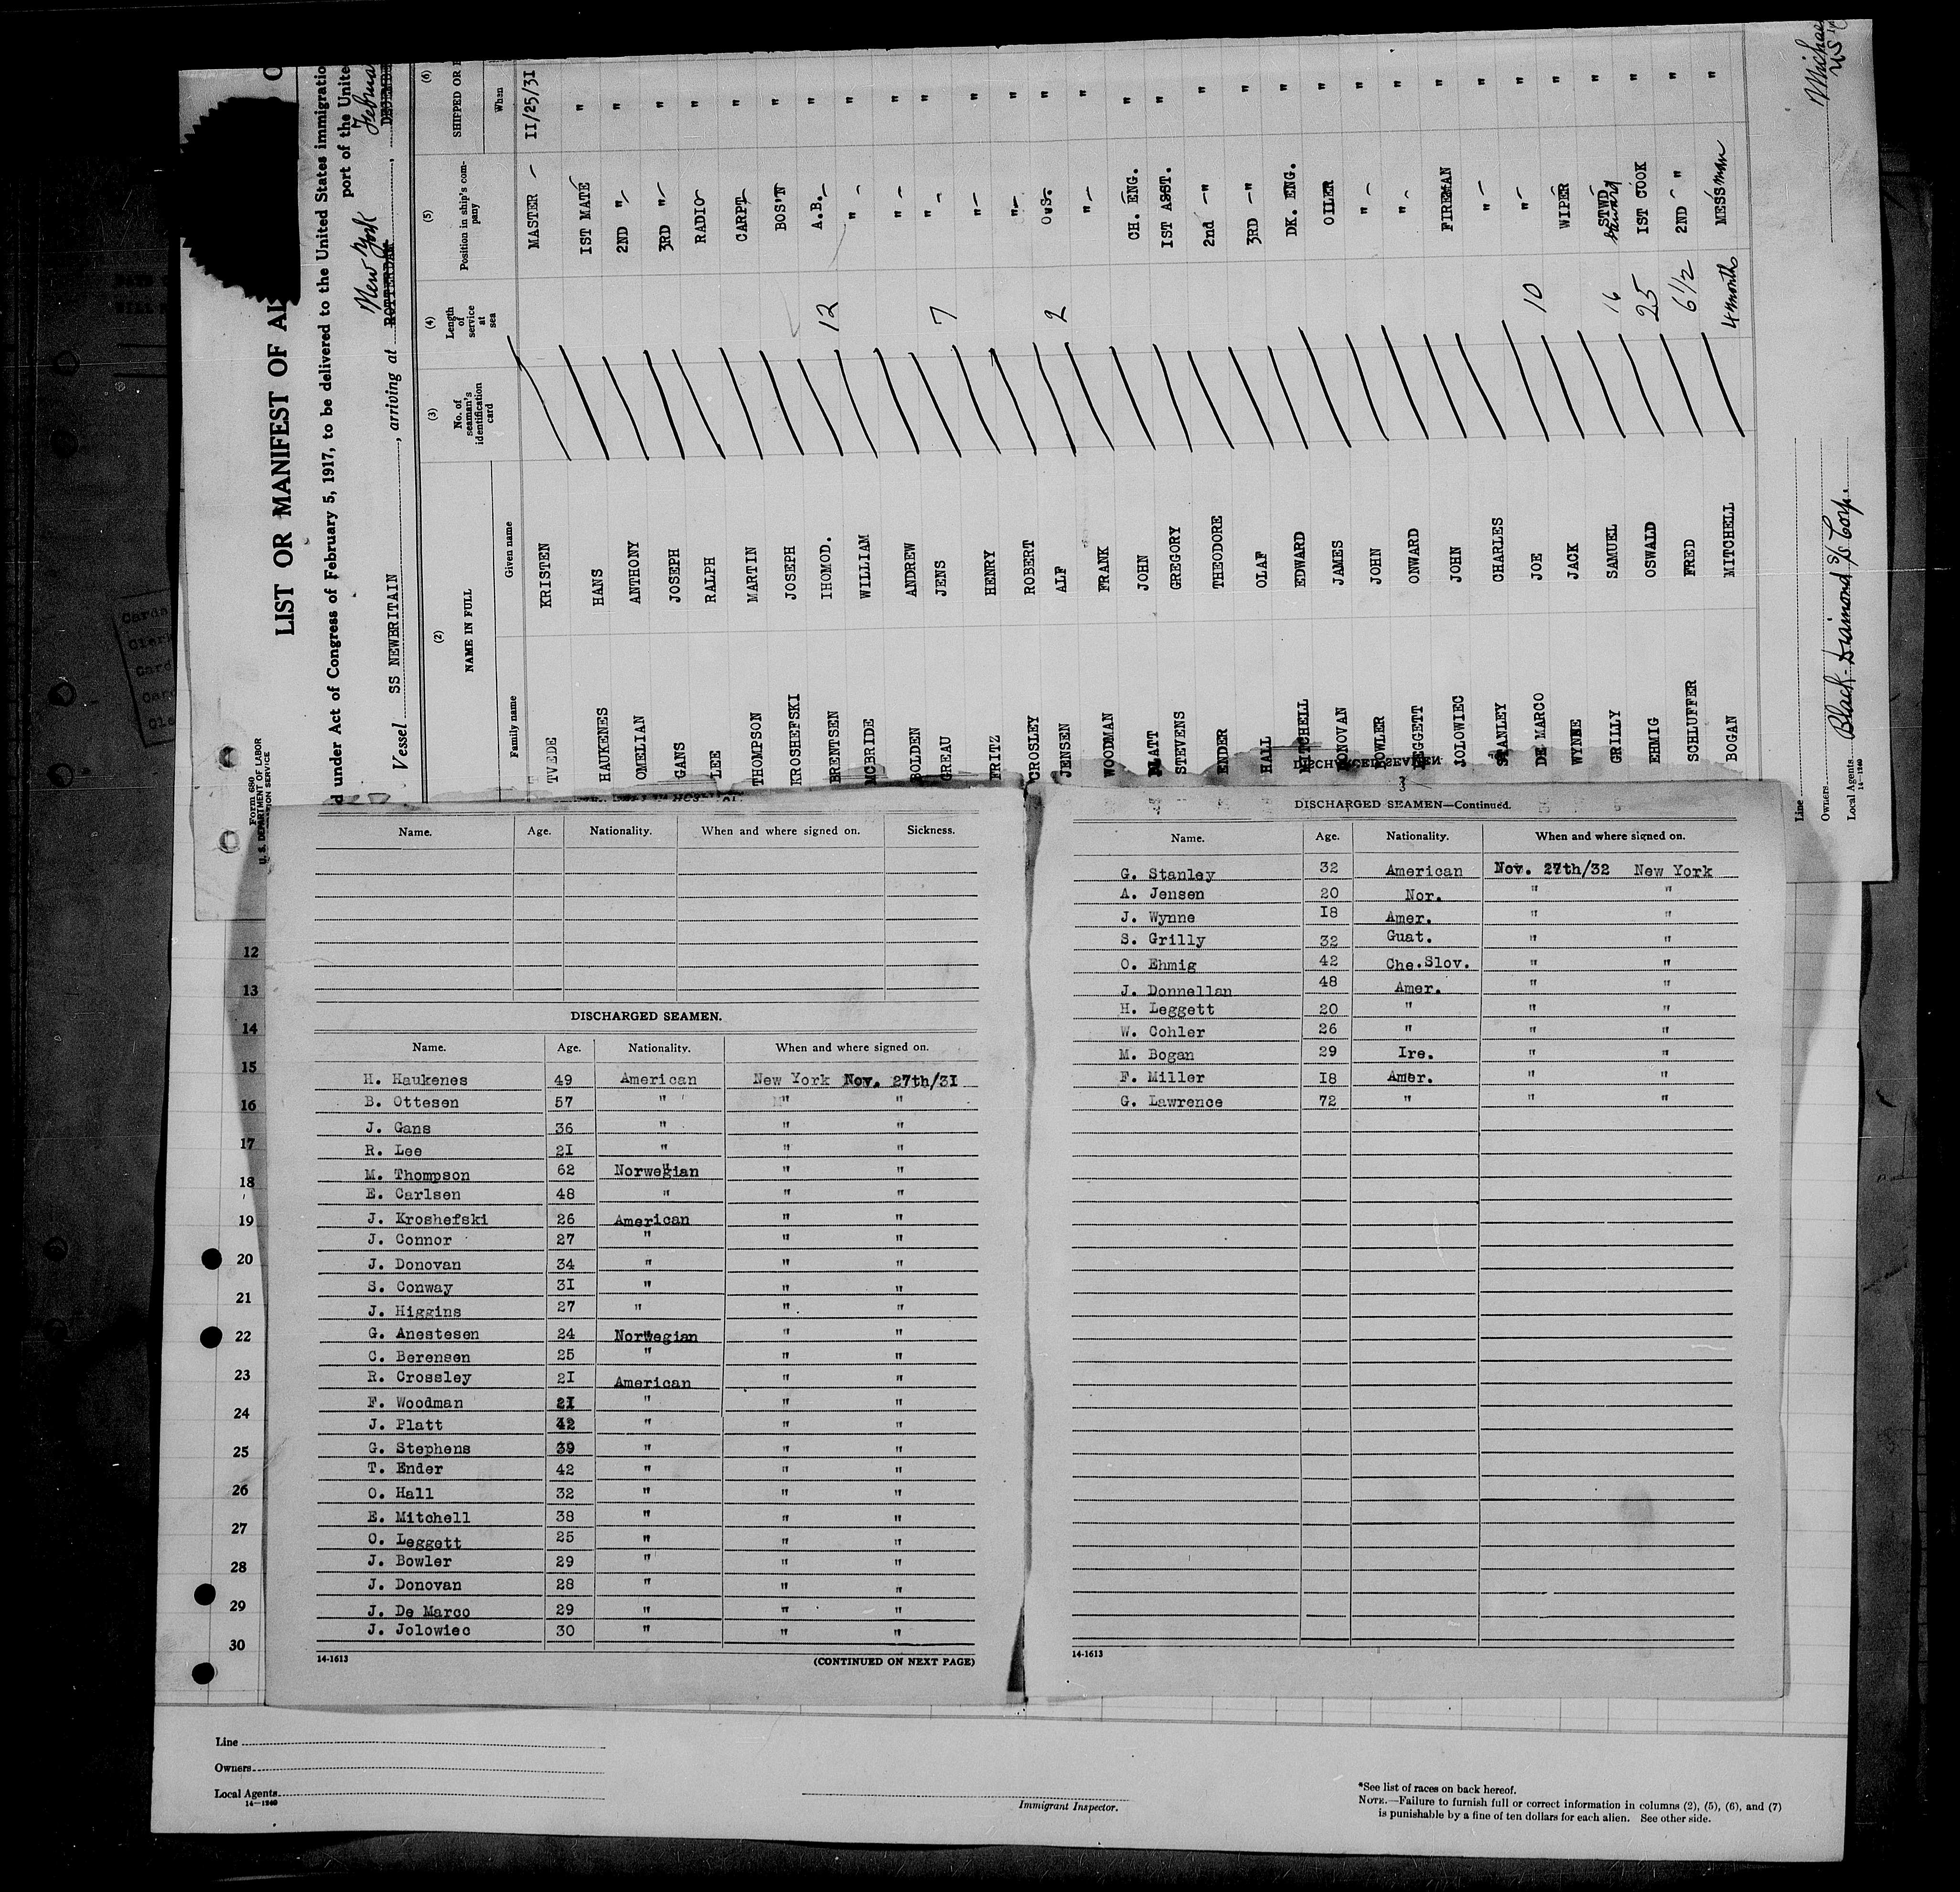 LIST OR MANIFEST OF
under Act of Congress of February 5, 1917, to be delivered to the United States
port of the
Vessel SS NEWBRITAIN, arriving at ROTTERDAM New York
(2) (3) (4) (5) (6)
NAME IN FULL No. of seaman's identification card Length of service at sea Position in ship's company SHIPPED OR
Family name Given name When
TVEDE KRISTEN MASTER 11/25/31
HAUKENES HANS 1ST MATE "
OMELIAN ANTHONY 2ND " "
GANS JOSEPH 3RD " "
LEE RALPH RADIO "
THOMPSON MARTIN CARPT "
KROSHEFSKI JOSEPH BOS'N "
BRENTSEN THOMOD. 12 A.B. "
MCBRIDE WILLIAM " "
BOLDEN ANDREW " "
GREAU JENS 7 " "
FRITZ HENRY " "
CROSLEY ROBERT " "
JENSEN ALF 2 O.S. "
WOODMAN FRANK " "
PLATT JOHN CH. ENG. "
STEVENS GREGORY IST ASST. "
ENDER THEODORE 2nd " "
HALL OLAF 3RD " "
MITCHELL EDWARD DK. ENG. "
DONOVAN JAMES OILER "
BOWLER JOHN " "
LEGGETT ONWARD " "
JOLOWIEC JOHN FIREMAN "
STANLEY CHARLES " "
DE MARCO JOE 10 " "
WYNNE JACK WIPER "
GRILLY SAMUEL 16 STWD "
EHMIG OSWALD 25 IST COOK "
SCHLUFFER FRED 6 1/2 2ND " "
BOGAN MITCHELL 4 months MESSMAN "
Line
Owners
Local Agents Black Diamond SS Corp.
14-1240
Form 680
U. S. DEPARTMENT OF LABOR
Name. Age. Nationality. When and where signed on. Sickness.
DISCHARGED SEAMEN.
Name. Age. Nationality. When and where signed on.
H. Haukenes 49 American New York Nov. 27th/31
B. Ottesen 57 " " "
J. Gans 36 " " "
R. Lee 21 " " "
M. Thompson 62 Norwegian " "
E. Carlsen 48 " " "
J. Kroshefski 26 American " "
J. Connor 27 " " "
J. Donovan 34 " " "
S. Conway 31 " " "
J. Higgins 27 " " "
G. Anestesen 24 Norwegian " "
C. Berensen 25 " " "
R. Crossley 21 American " "
F. Woodman 21 " " "
J. Platt 42 " " "
G. Stephens 39 " " "
T. Ender 42 " " "
O. Hall 32 " " "
E. Mitchell 38 " " "
O. Leggett 25 " " "
J. Bowler 29 " " "
J. Donovan 28 " " "
J. De Marco 29 " " "
J. Jolowiec 30 " " "
14-1613 (CONTINUED ON NEXT PAGE)
3
DISCHARGED SEAMEN—Continued.
Name. Age. Nationality. When and where signed on.
G. Stanley 32 American Nov. 27th/32 New York
A. Jensen 20 Nor. " "
J. Wynne 18 Amer. " "
S. Grilly 32 Guat. " "
O. Ehmig 42 Che.Slov. " "
J. Donnellan 48 Amer. " "
H. Leggett 20 " " "
W. Cohler 26 " " "
M. Bogan 29 Ire. " "
F. Miller 18 Amer. " "
G. Lawrence 72 " " "
14-1613
12
13
14
15
16
17
18
19
20
21
22
23
24
25
26
27
28
29
30
Line
Owners
Local Agents
14-1240
Immigrant Inspector.
*See list of races on back hereof.
NOTE.—Failure to furnish full or correct information in columns (2), (5), (6), and (7)
is punishable by a fine of ten dollars for each alien. See other side.